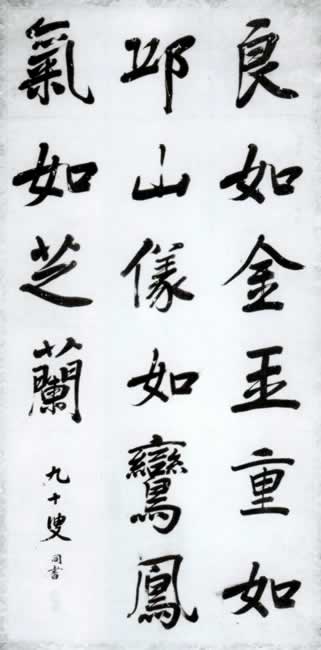 良如金玉重如
邱山儀如鸞鳳
氣如芝蘭
九十叟
同書